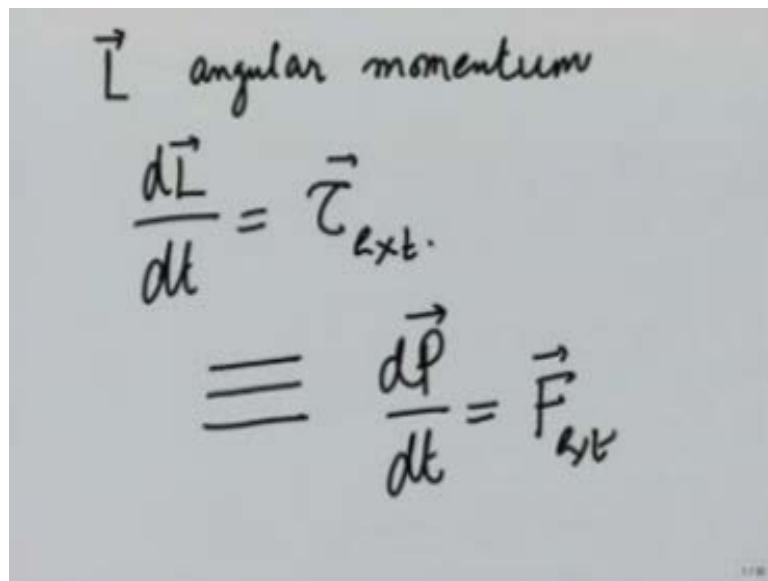 L⃗ angular momentum
dL⃗/dt = τ⃗ext.
≡ dP⃗/dt = F⃗ext